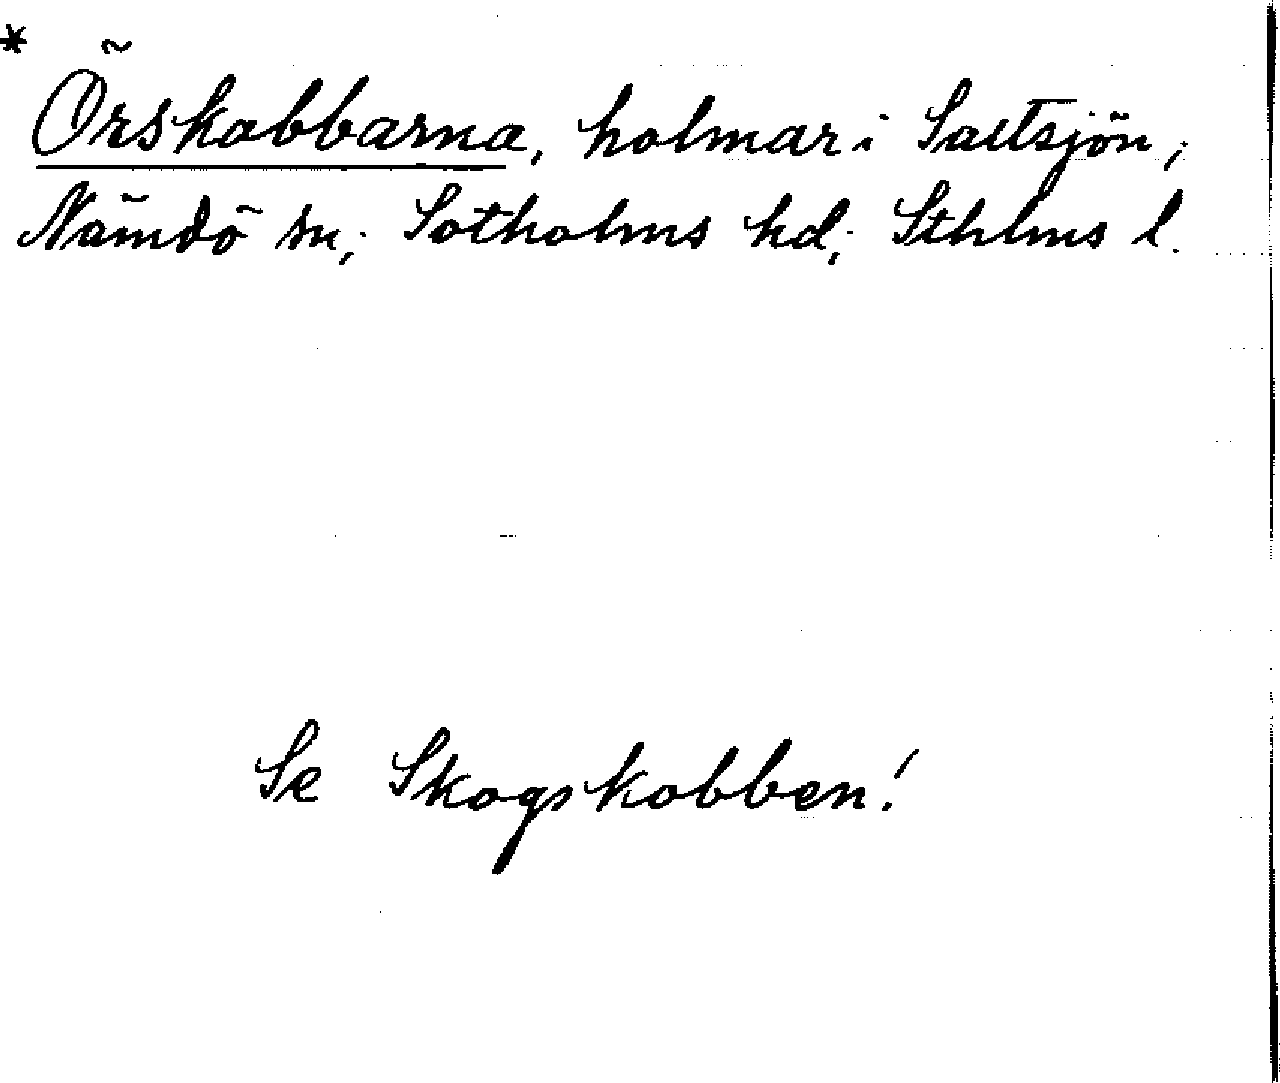 * Örskobbarna, holmar i Saltsjön,
Nämdö sn; Sotholms hd; Sthlms l.
Se Skogskobben!